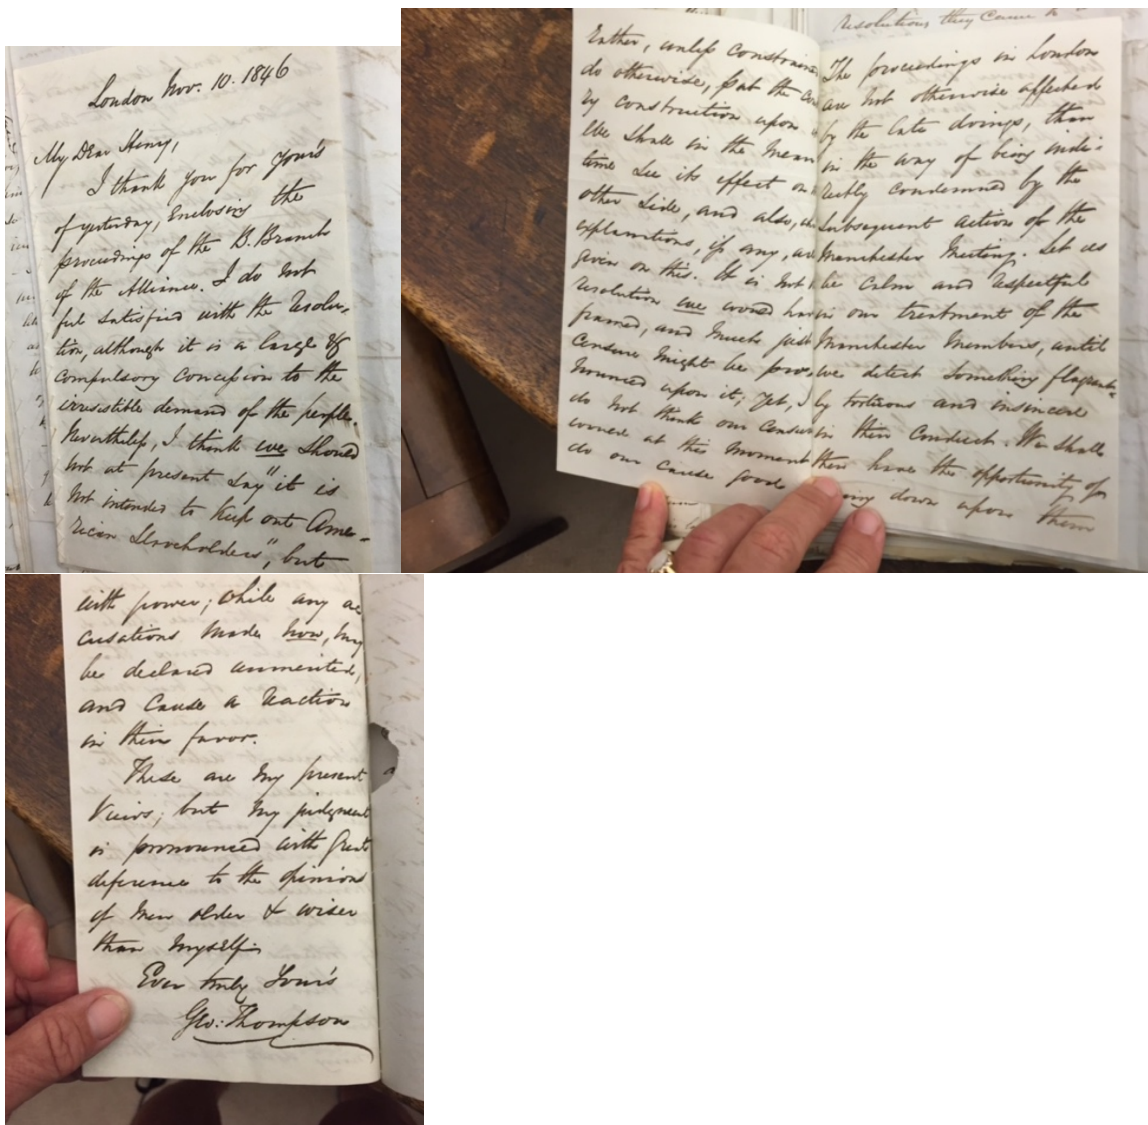 London Nov. 10. 1846
My Dear Henry,
I thank you for your's
of yesterday, enclosing the
proceedings of the B. Branch
of the Alliance. I do not
feel satisfied with the resolu-
tion, although it is a large &
compulsory concession to the
irresistible demand of the people.
Nevertheless, I think we should
not at present say "it is
not intended to keep out Ame-
rican Slaveholders", but
rather, unless constrain
do otherwise, put the
by construction upon
We shall in the mean
time see its effect on
other side, and also,
explanations, if any, are
given on this. It is not
resolution we would have
framed, and much just
censure might be pro-
nounced upon it; yet, I
do not think our censure
at this moment
do our cause good
resolutions they came
The proceedings in London
are not otherwise affected
by the late doings, than
in the way of being indi-
rectly condemned by the
subsequent action of the
Manchester Meeting. Let us
be calm and respectful
in our treatment of the
Manchester Members, until
we detect something flagrant-
ly tortuous and insincere
in their conduct. We shall
then have the opportunity of
down upon them
with power; while any ac
cusations made now, may
be declared unmerited,
and cause a reaction
in their favor.
These are my present
views; but my judgment
is pronounced with great
deference to the opinions
of men older & wiser
than myself.
Ever truly Your's
Geo: Thompson